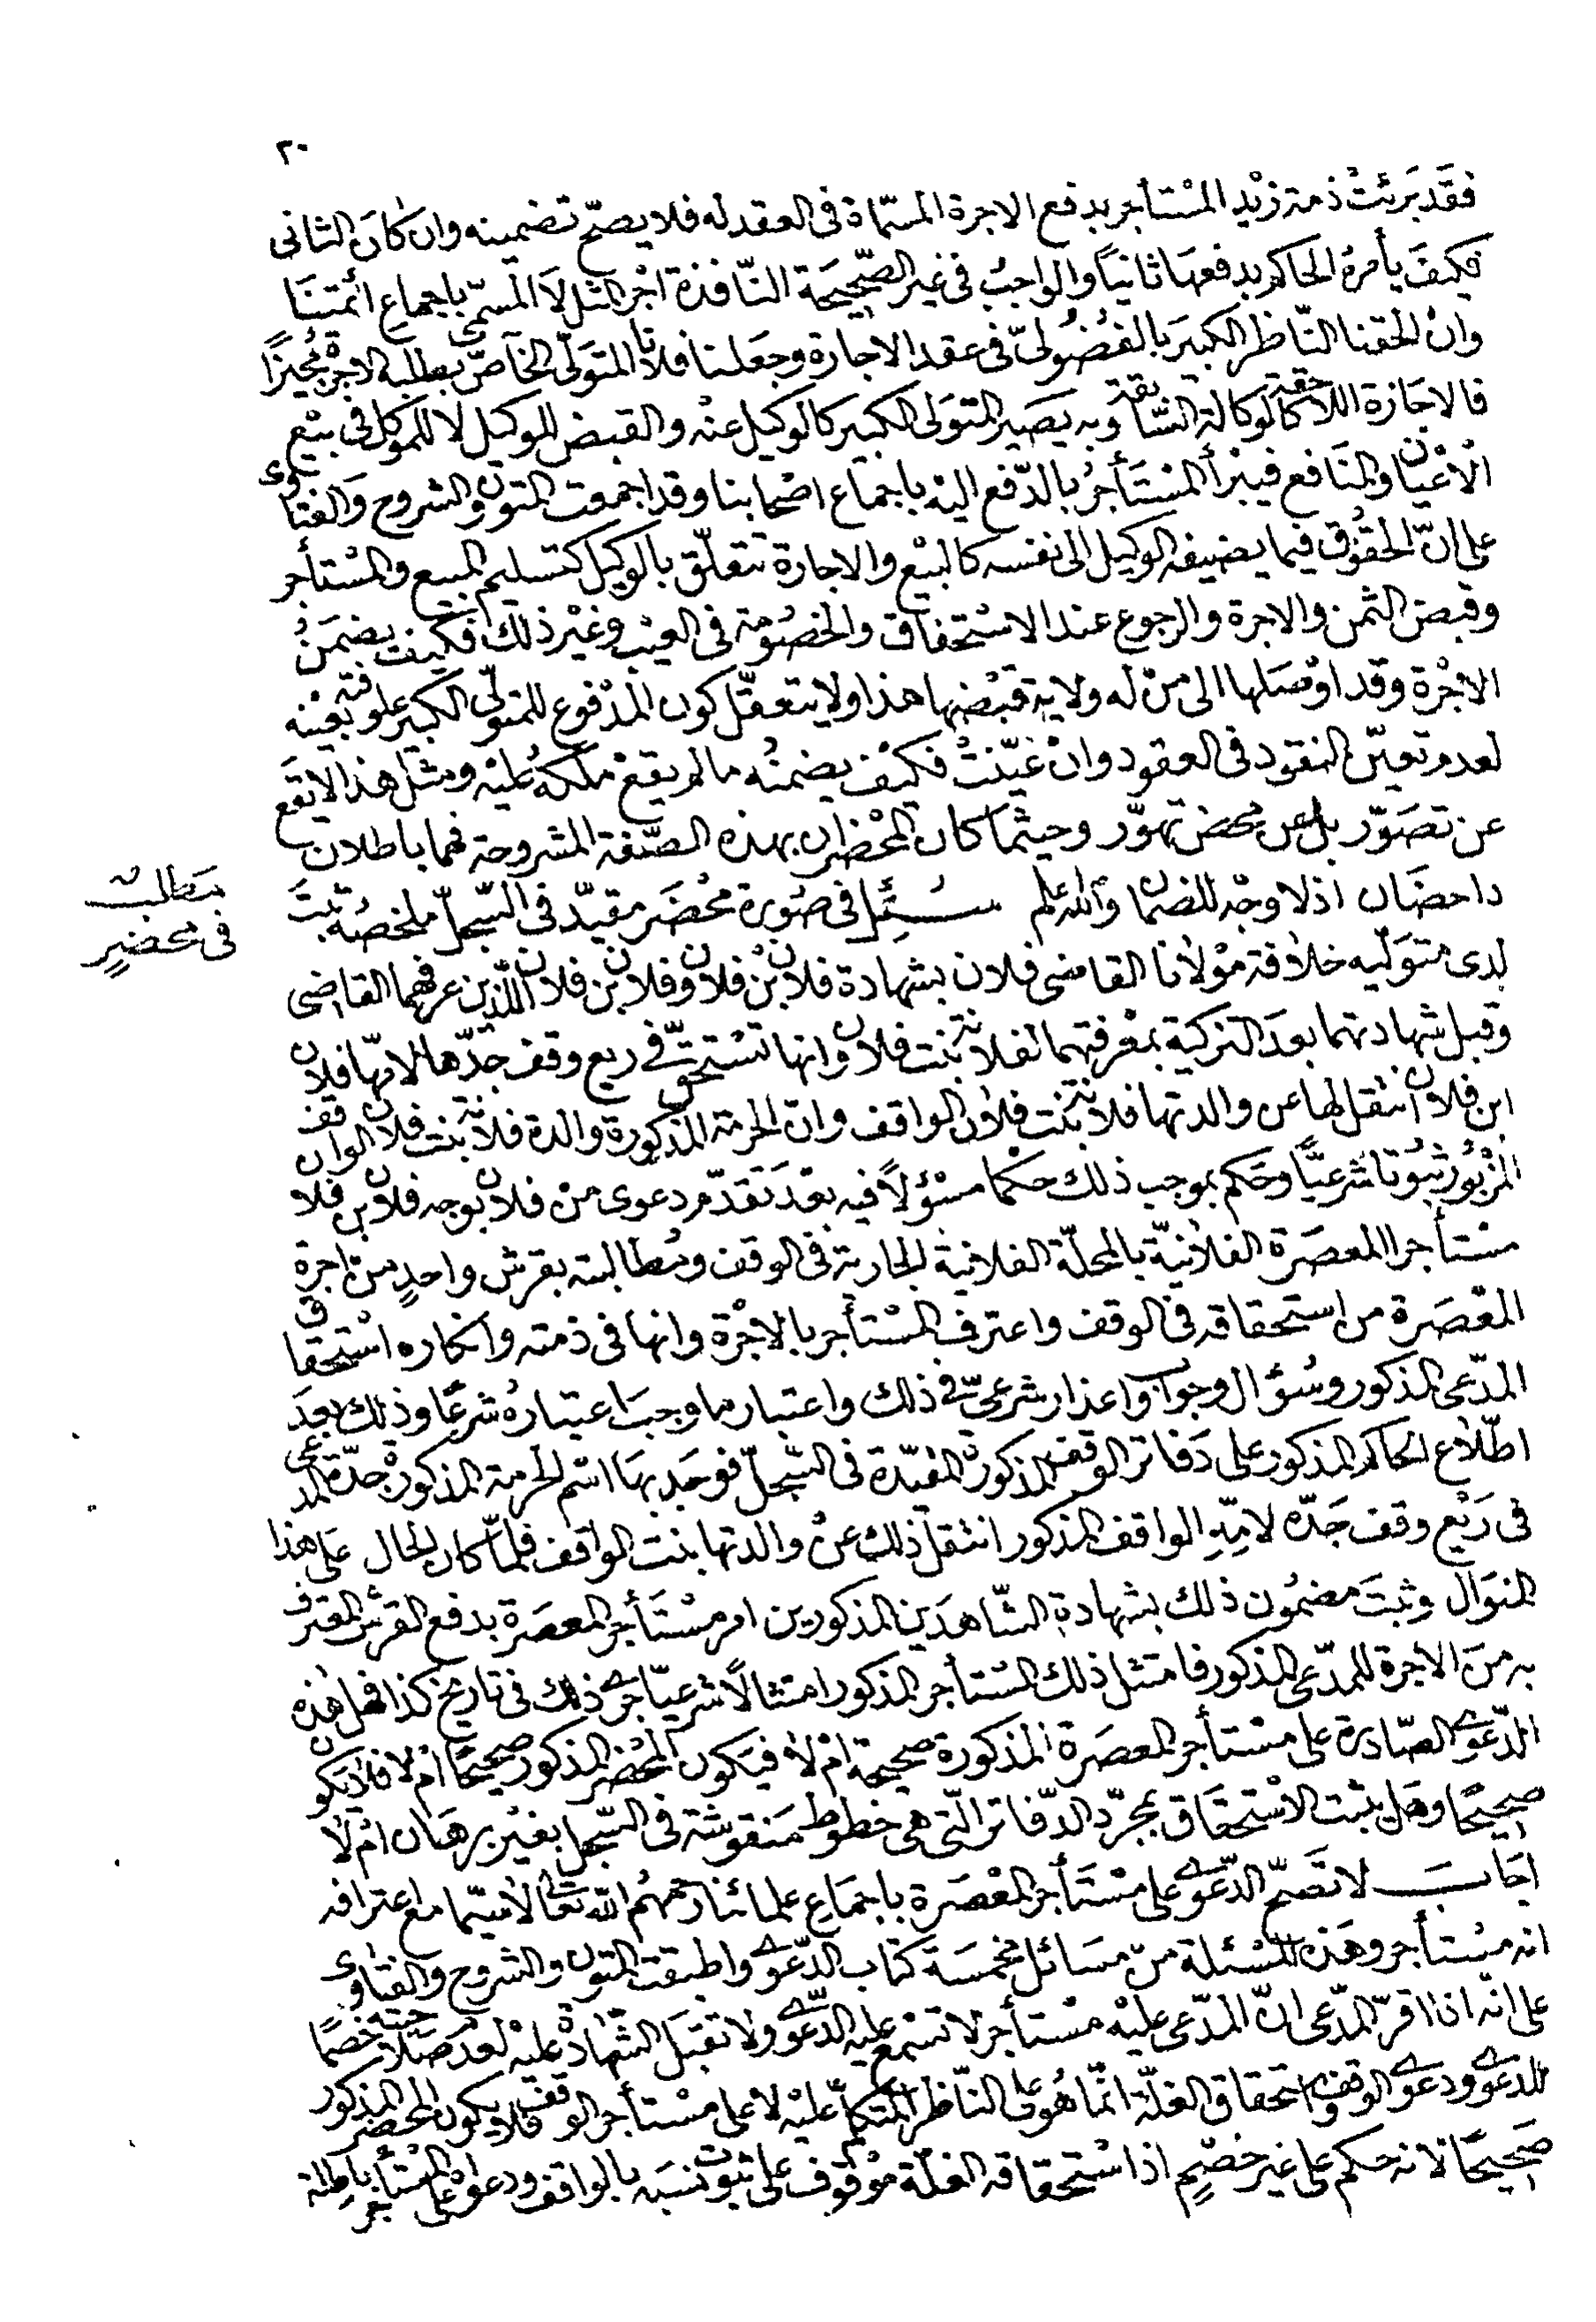 ٢٠
فقَد بَرئتْ ذمة زيْد المسْتأجر بدفع الاجرة المسمّاة فى العقد له فلا يصحّ تضمينه وان كانَ الثانى
فكيفَ يأمرهُ الحاكم بدفعهَا ثانياً والواجبُ فى غير الصّحيحَة النّافذة اجْر المثل لاَ المسمّى باجماع ائمتنَا
وانْ الحقنا النّاظر الكبيَر بالفضُولىّ فى عقد الاجارة وجعَلنا فلانا المتوَلّى الخاصّ بطلبه الاجْرة مُجيزًا
فالاجَازة اللاحقة كالوكالة السّابقة وبه يَصير المتوَلى الكبير كالوكيل عنْه والقبض للوكيل لا للموكل فى بيْع
الاعْيان والمنَافع فيبْرأ المسْتَأجرُ بالدّفع اليْه باجماع اصْحابنا وقد اجمعت المتون والشروح وَالفتاوى
على انّ الحقوُق فيما يضيفه الوكيل الى نفسه كالبيْع والاجارة تتعَلّق بالوكيل كتسليم المبيع والمسْتأجر
وقبض الثمن والاجرة والرجوع عند الاسْتحقاق والخصُومة فى العيْب وغيْر ذلك فكيف يضمَنُ
الاجْرة وقد اوْصَلها الى منْ له ولاية قبْضها هذا ولا يتعقّل كون المدْفوع للمتولّى الكبير علوفته بعيْنه
لعدم تعيّن النقود فى العقود وانْ عُيّنتْ فكيْف يضمنُه ما لم يقعْ ملكهُ عليْه ومثل هذا لا يقع
عن تصَوّر بل عن محض تهوّر وحيثما كان المحْضران بهذه الصّفة المشروحة فهما باطلان
داحضَان اذ لا وجْه للضمان والله اعلم سُـئِل فى صُورة محْضَر مقيّد فى السّجلّ ملخصُه ثبَتَ
مطلب
فى محضرٍ
لدى متوَلّيه خلافة موْلانا القاضى فلان بشهادة فلان بْن فلان وفلان بن فلان اللّذين عرفهما القاضى
وقبل شهادتهما بعدَ التزكية بمعْرفتهما لفلانة بنت فلان وانها تسْتحقّ فى ريع وقف جدّها لامّها فلان
ابن فلان انْتقل لها عن والدتها فلانة بنت فلان الواقف وانّ الحرمة المذكورة والدة فلانة بنت فلان الواقف
المزْبُور ثبُوتا شرعيًّا وحَكم بموجب ذلك حكما مسْؤلاً فيه بعْد تقدّم دعوى منْ فلان بوجه فلان بن فلان
مسْتأجر المعصَرة الفلانيّة بالمحلّة الفلانية الجارية فى الوقف ومُطالبته بقرش واحدٍ من اجرة
المعْصَرة من استحقاقه فى الوقف واعترف المسْتأجر بالاجْرة وانها فى ذمته وانكاره اسْتحقاق
المدّعى المذكور وسُؤال وجَواب واعذار شرعىّ فى ذلك واعتبار ما وجبَ اعتبارهُ شرعًا وذلك بعدَ
اطّلاع الحاكم المذكور على دَفاتر الوقف المذكورْ المقيّدة فى السّجلّ فوجَد بهَا اسْم الحرمة المذكورْة جدّة المدعى
فى رَيْع وقف جَدّه لامّهِ الواقف المذكور انتقل ذلك عنْ والدتها بنت الواقف فلمّا كان الحال عَلى هذا
المنوَال وثبتَ مضمُون ذلك بشهادة الشّاهدَين المذكورين امر مسْتَأجر المعصَرة بدفع القرش المعترف
به منَ الاجرة للمدّعى المذكور فامتثل ذلك المسْتأجر المذكور امتثالاً شرعيّا جرى ذلك فى تاريخ كذا فهل هذه
الدّعوى الصّادرة على مسْتأجر المعصَرة المذكورة صحيحة امْ لا فيَكون المحْضر المذكور صحيحًا امْ لا فلا يكون
صحِيحًا وهل يثبت الاسْتحقَاق بمجرّد الدّفاتر الّتى هى خطوط مَنقوشة فى السّجل بغيْر برهَان امْ لا
اجَابَ لا تصَحّ الدّعوَى على مسْتأجر المعْصَرة باجمَاع علمائنا رَحمهُم الله تعَالى لاسيّما مع اعترافه
انه مسْتأجر وهَذه المسْئلة منْ مسَائل مخمسَة كتاب الدّعوَى واطبقت المتون والشروح والفتاوى
على انّه اذا اقرّ المدّعى انّ المدّعى عليْه مسْتأجر لا تسْمع عليه الدّعوى ولا تقبَل الشّهادْة عليْه لعدم صَلاحيته خصْمًا
للدعوى ودعوَى الوقف واسْتحقاق الغلّة انّما هُو على النّاظر المتكلم عليْه لا على مسْتأجر الوقف فلا يكون المحْضر المذكور
صَحيحًا لانه حكم على غير خصْمٍ اذ اسْتحقاقه الغلّة موْقوف على ثبوت نسَبه بالواقف ودعواهُ على المسْتأجر باطلة